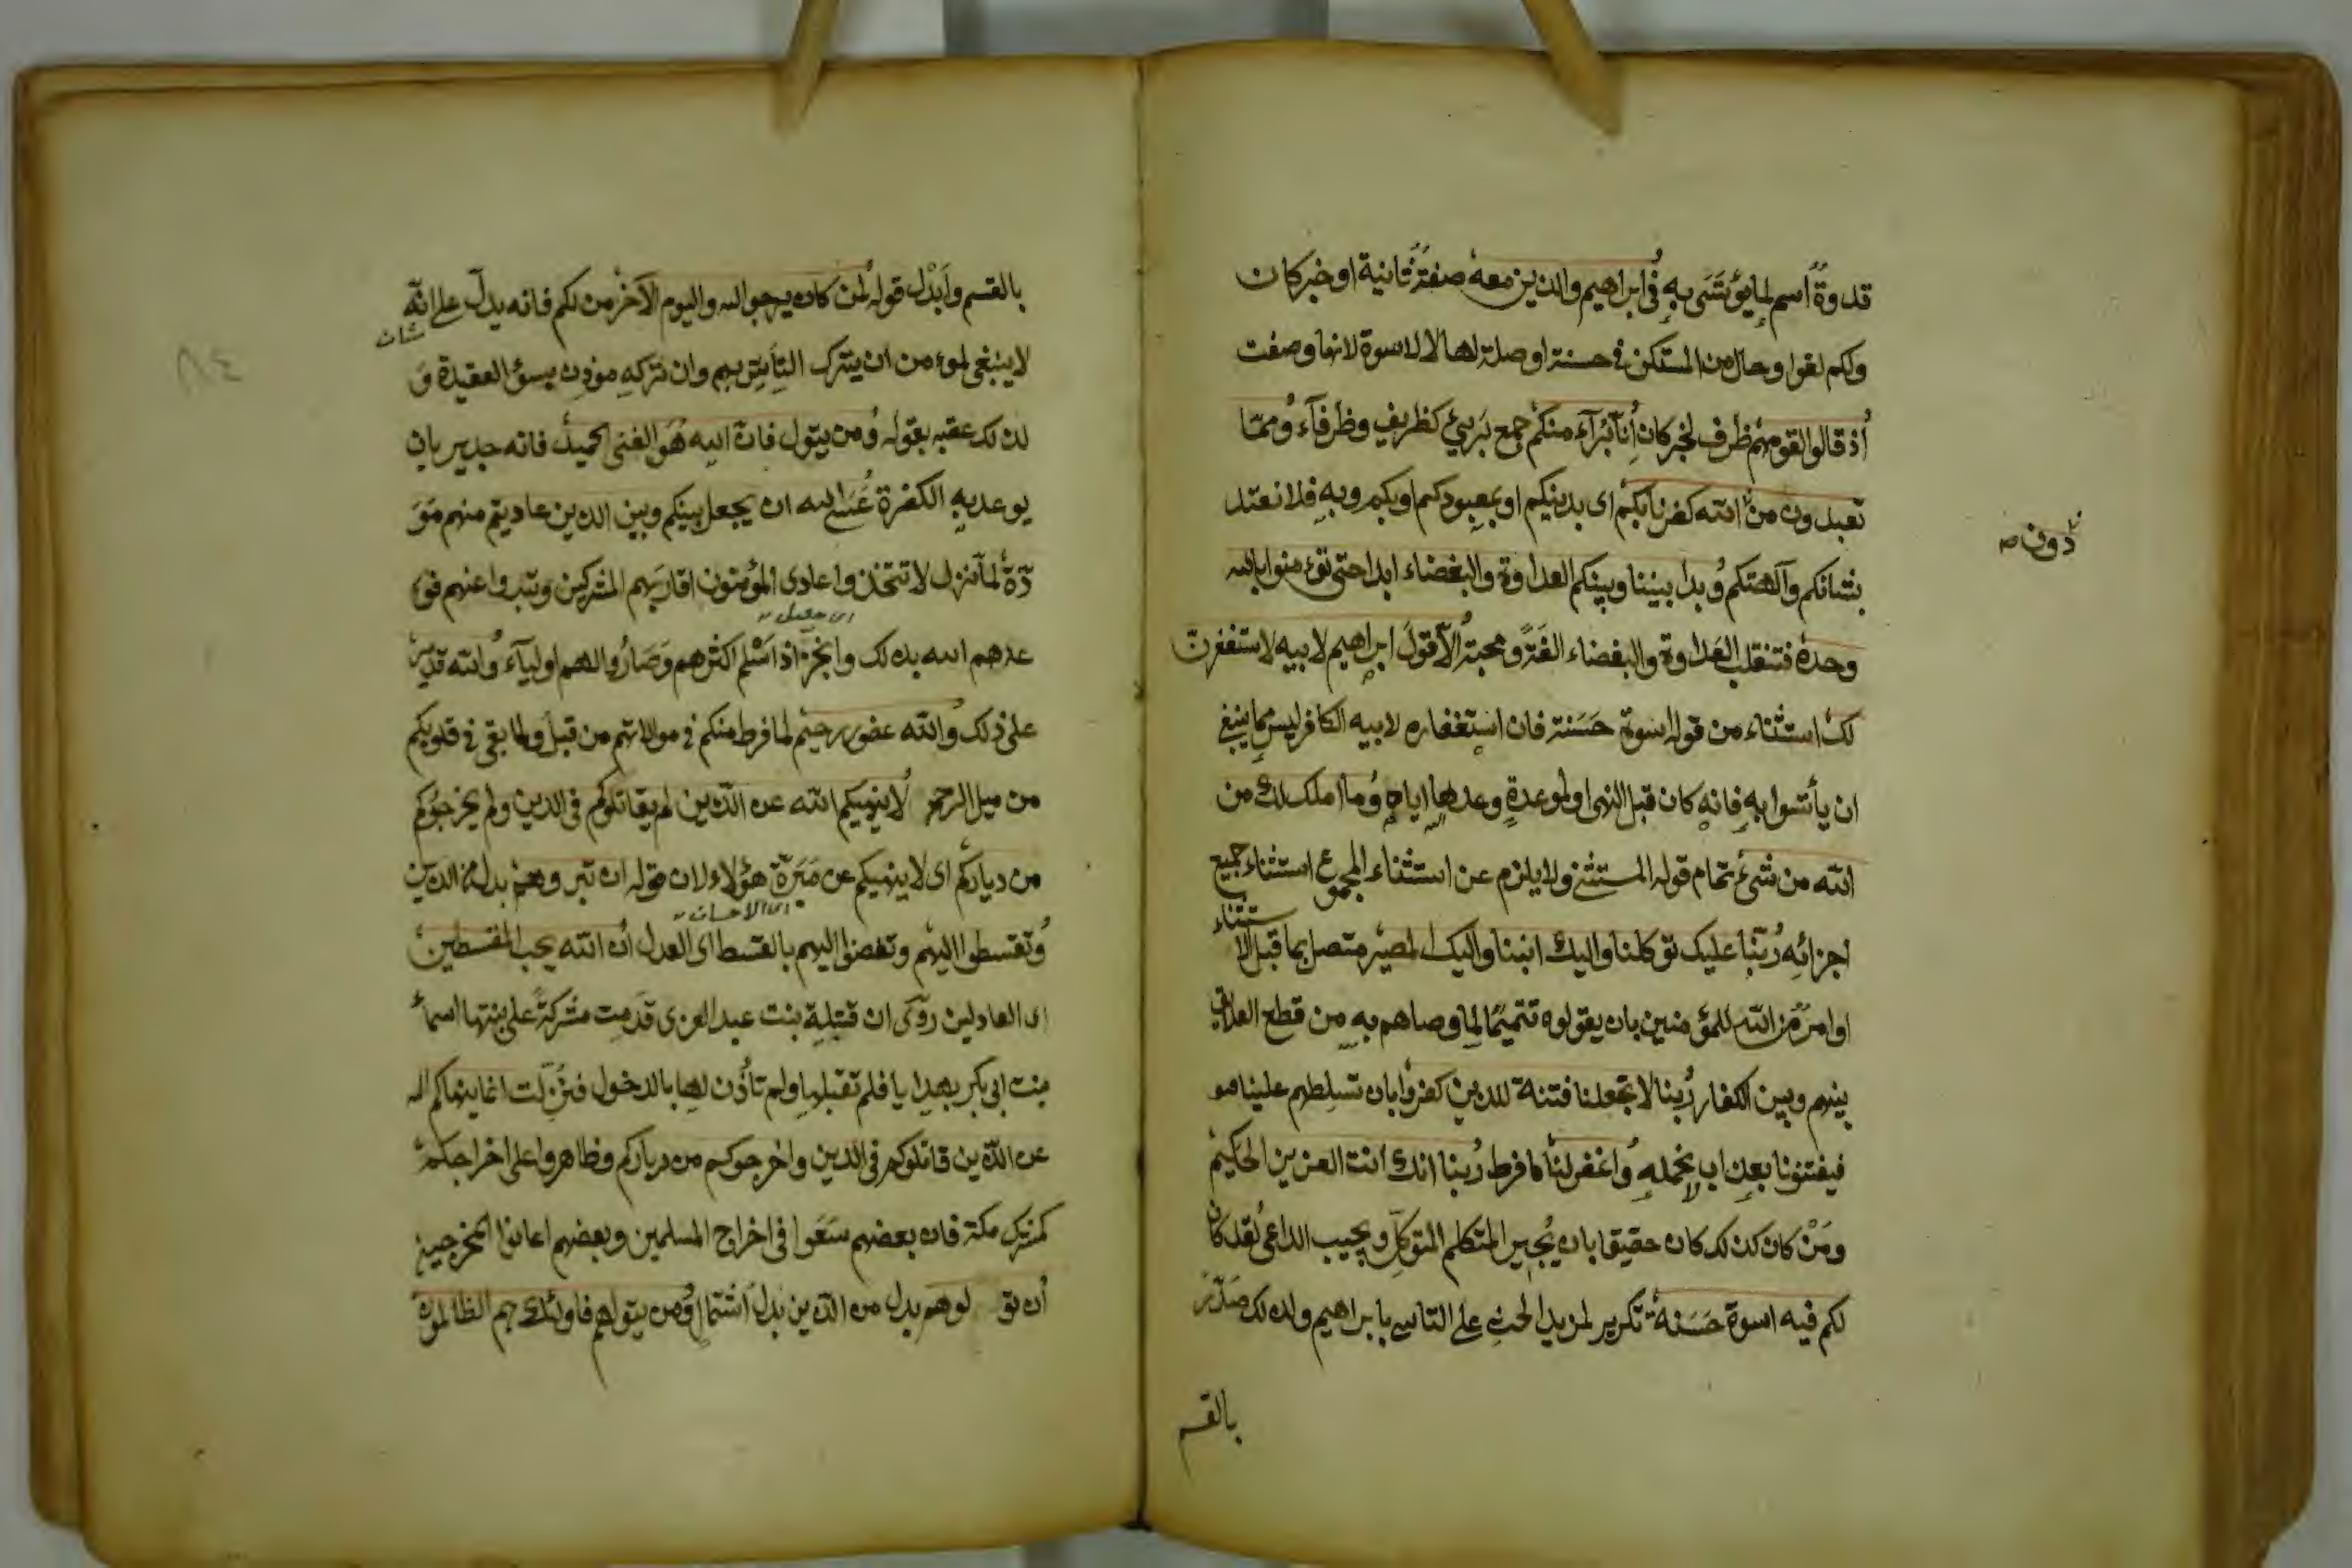 قدوةٌ اسم لما يؤتسى به في ابراهيم والذين معه صفة ثانية او خبر كان
ولكم لغو او حال من المستكن في حسنة او صلة لها لا لاسوة لانها وصفت
اذ قالوا لقومهم ظرف لخبر كان انا برآء منكم جمع بريئ كظريف وظرفآء ومما
تعبدون من الله كفرنا بكم اى بدينكم او بمعبودكم او بكم وبه فلا نعتد
دون صح
بشانكم وآلهتكم وبدا بيننا وبينكم العداوة والبغضاء ابدا حتى تؤمنوا بالله
وحده فتنقلب العداوة والبغضاء الفة ومحبة الا قول ابراهيم لابيه لاستغفرن
لك استثناء من قوله اسوة حسنة فان استغفاره لابيه الكافر ليس مما ينبغي
ان يأتسوا به فانه كان قبل النهى او لموعدة وعدها اياه وما املك لك من
الله من شئ تمام قوله المستثنى ولا يلزم عن استثناء المجموع استثناء جميع
اجزائه ربنا عليك توكلنا واليك انبنا واليك المصير متصل بما قبل الاستثناء
او امر من الله للمؤمنين بان يقولوه تتميما لما وصاهم به من قطع العلايق
بينهم وبين الكفار ربنا لا تجعلنا فتنة للذين كفروا بان تسلطهم علينا
فيفتنونا بعذاب لا نحمله واغفر لنا ما فرط ربنا انك انت العزيز الحكيم
ومن كان كذلك كان حقيقا بان يجير المتكلم المتوكل ويجيب الداعى لقد كان
لكم فيه اسوة حسنة تكرير لمزيد الحث على التاسى بابراهيم ولذلك صدّر
بالقسم
بالقسم وابدل قوله لمن كان يرجو الله واليوم الآخر من لكم فانه يدل على انه
لا ينبغى لمؤمن ان يترك التأسى بهم وان تركه موذن بسوء العقيدة و
لذلك عقبه بقوله ومن يتول فان الله هو الغنى الحميد فانه جدير بان
يوعد به الكفرة عسى الله ان يجعل بينكم وبين الذين عاديتم منهم مو
دّة لما نزل لا تتخذوا عادى المؤمنون اقاربهم المشركين وتبرواعنهم فو
اى حصل
عدهم الله بذلك وانجز اذ اسلم اكثرهم وصاروا لهم اوليآء والله قدير
على ذلك والله غفور رحيم لما فرط منكم في موالاتهم من قبل ولما بقى في قلوبكم
من ميل الرحم لا ينهيكم الله عن الذين لم يقاتلوكم فى الدين ولم يخرجوكم
من دياركم اى لا ينهيكم عن مبرّة هؤلاء لان قوله ان تبروهم بدل من الذين
اى الاحسان
وتقسطوا اليهم وتفضوا اليهم بالقسط اى العدل ان الله يحب المقسطين
اى العادلين روى ان قتيلة بنت عبد العزى قدمت مشركة على بنتها اسماء
بنت ابى بكر بهدايا فلم تقبلها ولم تأذن لها بالدخول فنزلت انما ينهاكم الله
عن الذين قاتلوكم فى الدين واخرجوكم من دياركم وظاهروا على اخراجكم
كمشركى مكة فان بعضهم سعوا فى اخراج المسلمين وبعضهم اعانوا المخرجين
ان تولوهم بدل من الذين بدل اشتمال ومن يتولهم فاولئك هم الظالمون
٨٤